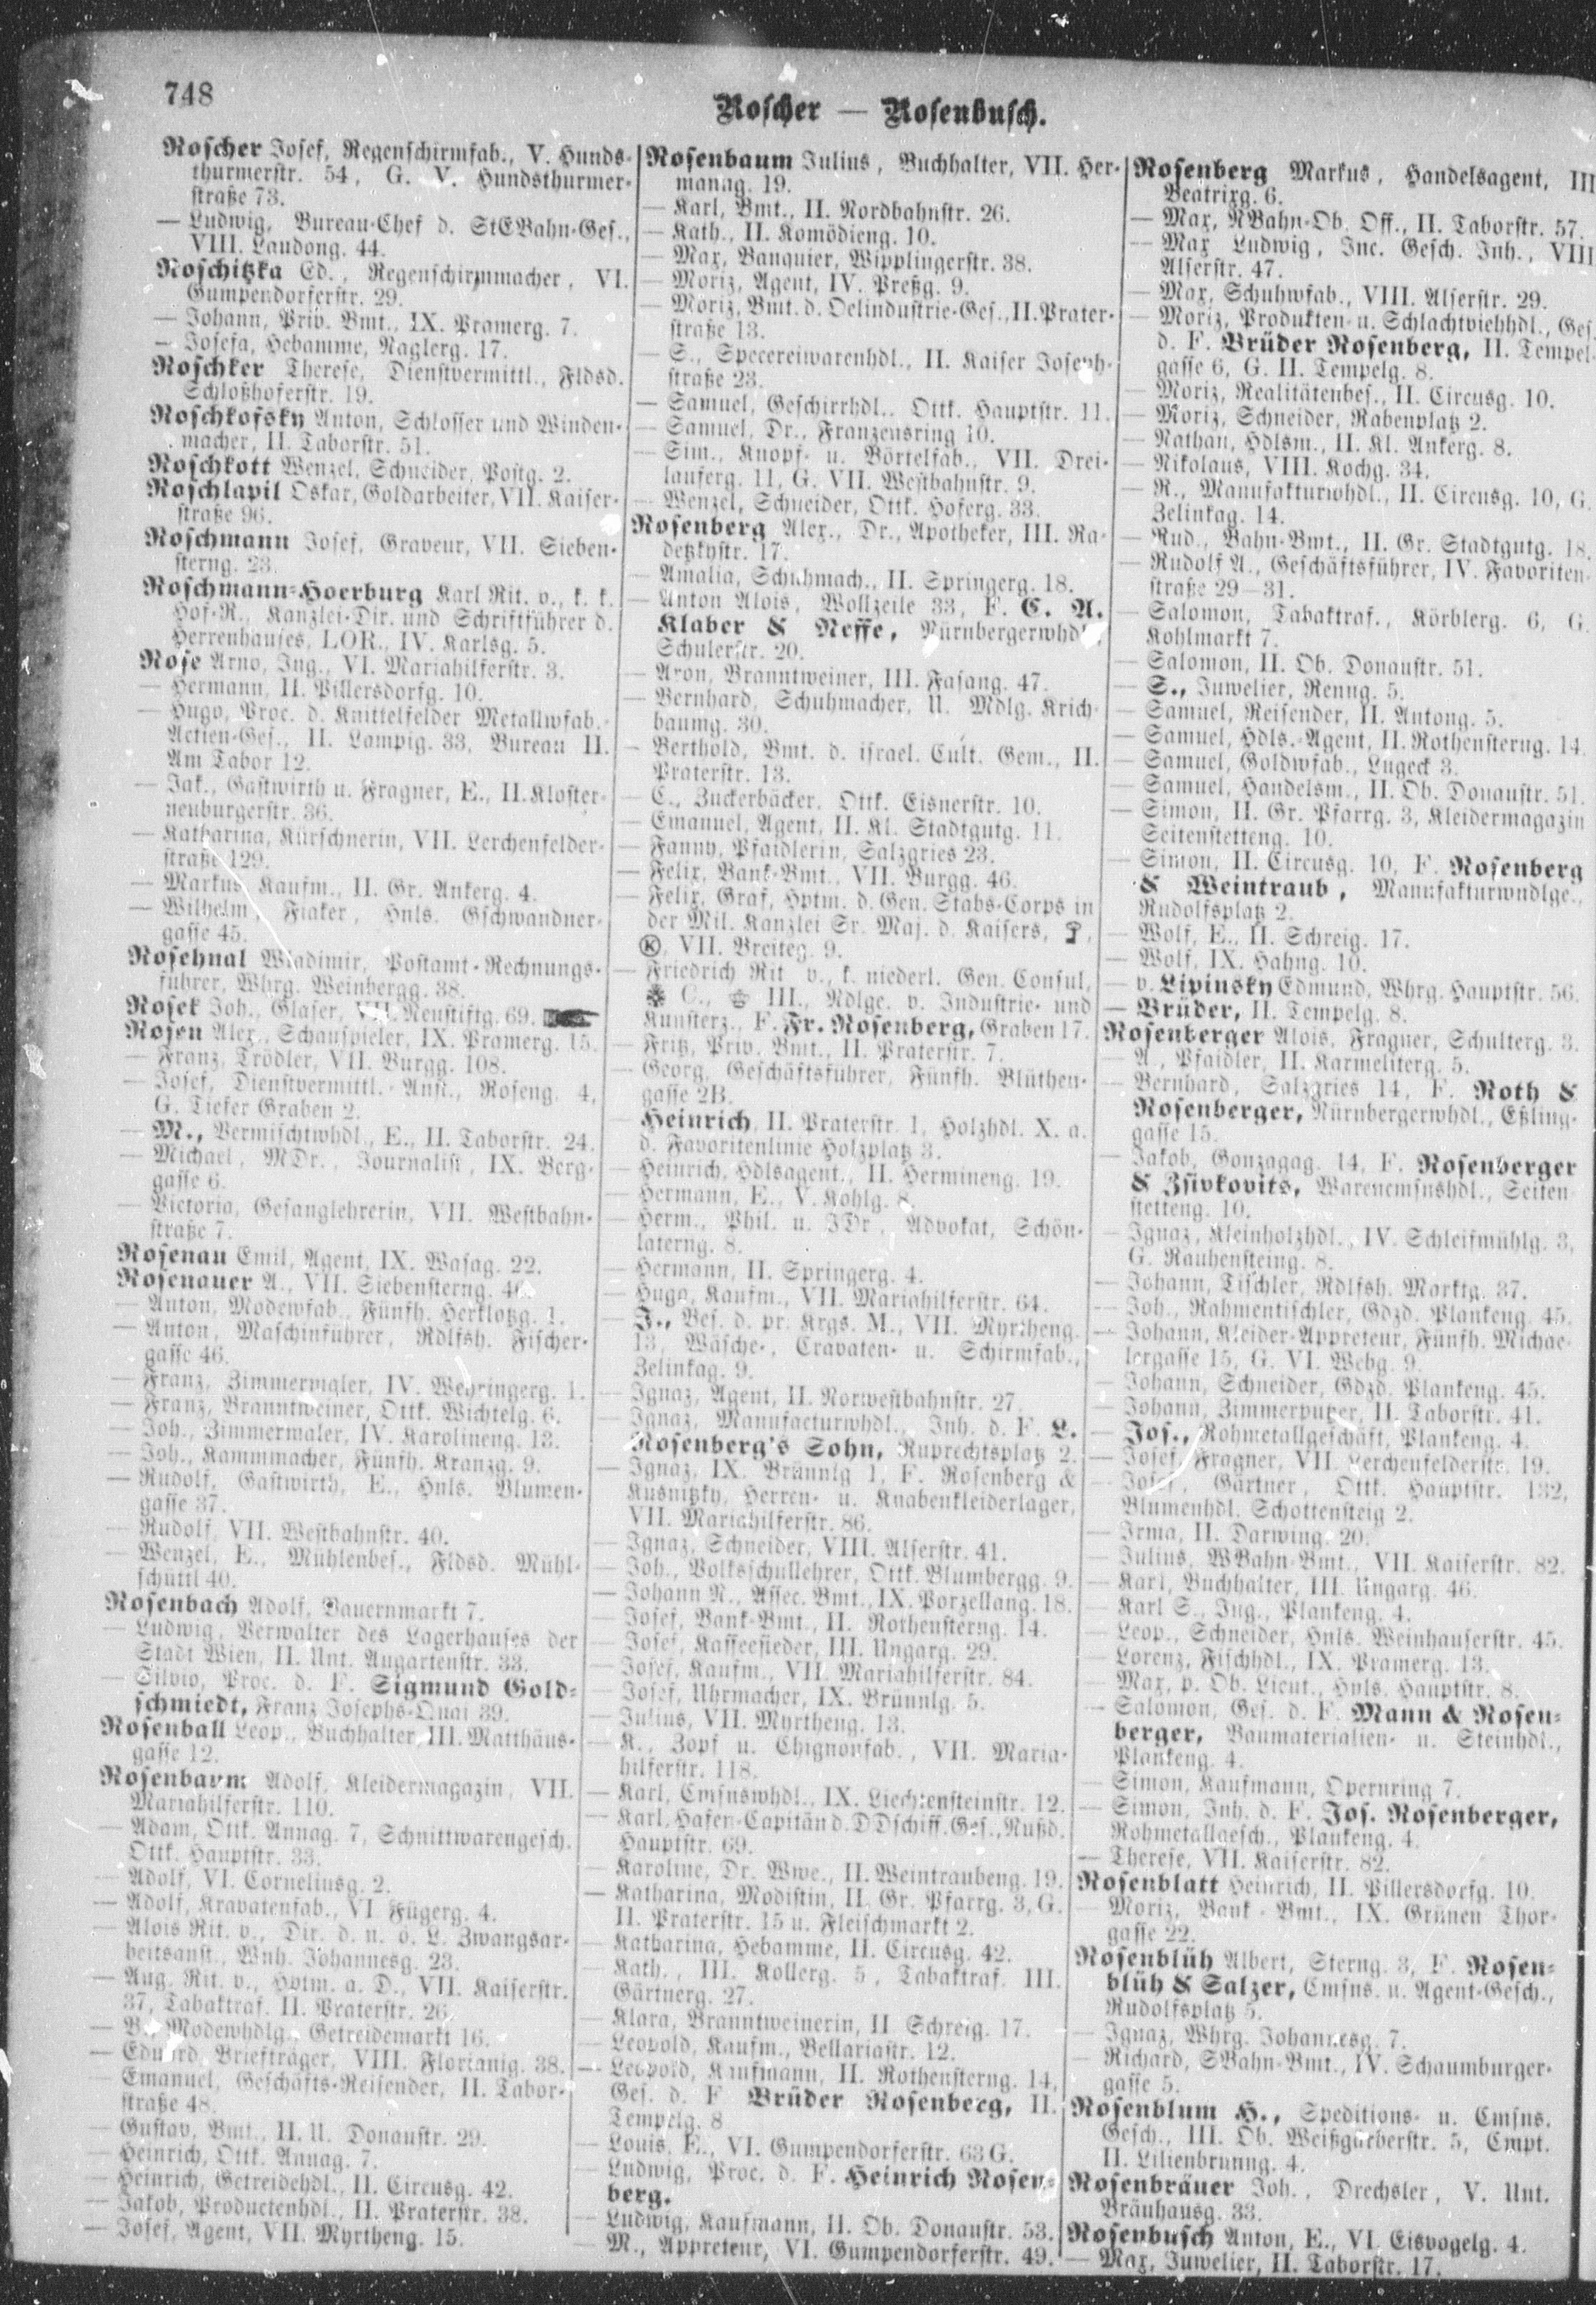 748
Roscher — Rosenbusch.
Roscher Josef, Regenschirmfab., V. Hunds-
thurmerstr. 54, G. V. Hundsthurmer-
straße 73.
— Ludwig, Bureau-Chef d. StEBahn-Ges.,
VIII. Laudong. 44.
Roschitzka Ed., Regenschirmmacher, VI.
Gumpendorferstr. 29.
— Johann, Priv. Bmt., IX. Pramerg. 7.
— Josefa, Hebamme, Naglerg. 17.
Roschker Therese, Dienstvermittl., Fldsd.
Schloßhoferstr. 19.
Roschkofsky Anton, Schlosser und Winden-
macher, II. Taborstr. 51.
Roschkott Wenzel, Schneider, Postg. 2.
Roschlapil Oskar, Goldarbeiter, VII. Kaiser-
straße 96.
Roschmann Josef, Graveur, VII. Sieben-
sterng. 23.
Roschmann-Hoerburg Karl Rit. v., k. k.
Hof-R., Kanzlei-Dir. und Schriftführer d.
Herrenhauses, LOR., IV. Karlsg. 5.
Rose Arno, Ing., VI. Mariahilferstr. 3.
— Hermann, II. Pillersdorfg. 10.
— Hugo, Proc. d. Knittelfelder Metallwfab.-
Actien-Ges., II. Lampig. 33, Bureau II.
Am Tabor 12.
— Jak., Gastwirth u. Fragner, E., II. Kloster-
neuburgerstr. 36.
— Katharina, Kürschnerin, VII. Lerchenfelder-
straße 129.
— Markus Kaufm., II. Gr. Ankerg. 4.
— Wilhelm, Fiaker, Hnls. Gschwandner-
gasse 45.
Rosehnal Wladimir, Postamt-Rechnungs-
führer, Whrg. Weinbergg. 38.
Rosek Joh., Glaser, VII. Neustiftg. 69.
Rosen Alex., Schauspieler, IX. Pramerg. 15.
— Franz, Trödler, VII. Burgg. 108.
— Josef, Dienstvermittl.-Anst., Roseng. 4,
G. Tiefer Graben 2.
— M., Vermischtwhdl., E., II. Taborstr. 24.
— Michael, MDr., Journalist, IX. Berg-
gasse 6.
— Victoria, Gesanglehrerin, VII. Westbahn-
straße 7.
Rosenau Emil, Agent, IX. Wasag. 22.
Rosenauer A., VII. Siebensterng.
— Anton, Modewfab., Fünfh. Herklotzg. 1.
— Anton, Maschinführer, Rdlfsh. Fischer-
gasse 46.
— Franz, Zimmermaler, IV. Weyringerg. 1.
— Franz, Branntweiner, Ottk. Wichtelg. 6.
— Joh., Zimmermaler, IV. Karolineng. 13.
— Joh., Kammmacher, Fünfh. Kranzg. 9.
— Rudolf, Gastwirth, E., Hnls. Blumen-
gasse 37.
— Rudolf, VII. Westbahnstr. 40.
— Wenzel, E., Mühlenbes., Fldsd. Mühl-
schüttl 40.
Rosenbach Adolf, Bauernmarkt 7.
— Ludwig, Verwalter des Lagerhauses der
Stadt Wien, II. Unt. Augartenstr. 33.
— Silvio, Proc. d. F. Sigmund Gold-
schmiedt, Franz Josephs-Quai 39.
Rosenball Leop., Buchhalter, III. Matthäus-
gasse 12.
Rosenbaum Adolf, Kleidermagazin, VII.
Mariahilferstr. 110.
— Adam, Ottk. Annag. 7, Schnittwarengesch.
Ottk. Hauptstr. 33.
— Adolf, VI. Corneliusg. 2.
— Adolf, Kravatenfab., VI. Fügerg. 4.
— Alois Rit. v., Dir. d. n. ö. L. Zwangsar-
beitsanst., Wnh. Johannesg. 23.
— Aug. Rit. v., Hptm. a. D., VII. Kaiserstr.
37, Tabaktraf. II. Praterstr. 26.
— B., Modewhdlg., Getreidemarkt 16.
— Eduard, Briefträger, VIII. Florianig. 38.
— Emanuel, Geschäfts-Reisender, II. Tabor-
straße 48.
— Gustav, Bmt., II. U. Donaustr. 29.
— Heinrich, Ottk. Annag. 7.
— Heinrich, Getreidehdl., II. Circusg. 42.
— Jakob, Productenhdl., II. Praterstr. 38.
— Josef, Agent, VII. Myrtheng. 15.
Rosenbaum Julius, Buchhalter, VII. Her-
manng. 19.
— Karl, Bmt., II. Nordbahnstr. 26.
— Kath., II. Komödieng. 10.
— Max, Banquier, Wipplingerstr. 38.
— Moriz, Agent, IV. Preßg. 9.
— Moriz, Bmt. d. Oelindustrie-Ges., II. Prater-
straße 13.
— S., Specereiwarenhdl., II. Kaiser Joseph-
straße 23.
— Samuel, Geschirrhdl., Ottk. Hauptstr. 11.
— Samuel, Dr., Franzensring 10.
— Sim., Knopf- u. Börtelfab., VII. Drei-
lauferg. 11, G. VII. Westbahnstr. 9.
— Wenzel, Schneider, Ottk. Hoferg. 33.
Rosenberg Alex., Dr., Apotheker, III. Ra-
detzkystr. 17.
— Amalia, Schuhmach., II. Springerg. 18.
— Anton Alois, Wollzeile 33, F. C. A.
Klaber & Neffe, Nürnbergerwhdl.,
Schulerstr. 20.
— Aron, Branntweiner, III. Fasang. 47.
— Bernhard, Schuhmacher, U. Mdlg. Krich-
baumg. 30.
— Berthold, Bmt. d. israel. Cult. Gem., II.
Praterstr. 13.
— C., Zuckerbäcker, Ottk. Eisnerstr. 10.
— Emanuel, Agent, II. Kl. Stadtgutg. 11.
— Fanny, Pfaidlerin, Salzgries 23.
— Felix, Bank-Bmt., VII. Burgg. 46.
— Felix, Graf, Hptm. d. Gen. Stabs-Corps in
der Mil. Kanzlei Sr. Maj. d. Kaisers,
Ⓚ, VII. Breiteg. 9.
— Friedrich Rit v., k. niederl. Gen. Consul,
C., III., Ndlge. v. Industrie- und
Kunsterz., F. Fr. Rosenberg, Graben 17.
— Fritz, Priv. Bmt., II. Praterstr. 7.
— Georg, Geschäftsführer, Fünfh. Blüthen-
gasse 2B.
— Heinrich, II. Praterstr. 1, Holzhdl. X. a.
d. Favoritenlinie Holzplatz 3.
— Heinrich, Hdlsagent., II. Hermineng. 19.
— Hermann, E., V. Kohlg. 8.
— Herm., Phil. u. JDr., Advokat, Schön-
laterng. 8.
— Hermann, II. Springerg. 4.
— Hugo, Kaufm., VII. Mariahilferstr. 64.
— J., Bes. d. pr. Krgs. M., VII. Myrtheng.
13, Wäsche-, Cravaten- u. Schirmfab.,
Zelinkag. 9.
— Ignaz, Agent, II. Norwestbahnstr. 27.
— Ignaz, Manufacturwhdl., Inh. d. F. L.
Rosenberg's Sohn, Ruprechtsplatz 2.
— Ignaz, IX. Brünnlg 1, F. Rosenberg &
Kusnitzky, Herren- u. Knabenkleiderlager,
VII. Mariahilferstr. 86.
— Ignaz, Schneider, VIII. Alserstr. 41.
— Joh., Volksschullehrer, Ottk. Blumbergg. 9.
— Johann N., Assec. Bmt., IX. Porzellang. 18.
— Josef, Bank-Bmt., II. Rothensterng. 14.
— Josef, Kaffeesieder, III. Ungarg. 29.
— Josef, Kaufm., VII. Mariahilferstr. 84.
— Josef, Uhrmacher, IX. Brünnlg. 5.
— Julius, VII. Myrtheng. 13.
— K., Zopf u. Chignonfab., VII. Maria-
hilferstr. 118.
— Karl, Cmsnswhdl., IX. Liechtensteinstr. 12.
— Karl, Hafen-Capitän d. DDschiff. Ges., Nußd.
Hauptstr. 69.
— Karoline, Dr. Wwe., II. Weintraubeng. 19.
— Katharina, Modistin, II. Gr. Pfarrg. 3, G.
II. Praterstr. 15 u. Fleischmarkt 2.
— Katharina, Hebamme, II. Circusg. 42.
— Kath., III. Kollerg. 5, Tabaktraf. III.
Gärtnerg. 27.
— Klara, Branntweinerin, II Schreig. 17.
— Leopold, Kaufm., Bellariastr. 12.
— Leopold, Kaufmann, II. Rothensterng. 14,
Ges. d. F Brüder Rosenberg, II.
Tempelg. 8
— Louis. E., VI. Gumpendorferstr. 63 G.
— Ludwig, Proc. d. F. Heinrich Rosen-
berg.
— Ludwig, Kaufmann, II. Ob. Donaustr. 53.
— M., Appreteur, VI. Gumpendorferstr. 49.
Rosenberg Markus, Handelsagent, III
Beatrixg. 6.
— Max, NBahn-Ob. Off., II. Taborstr. 57.
— Max Ludwig, Inc. Gesch. Inh., VIII
Alserstr. 47.
— Max, Schuhwfab., VIII. Alserstr. 29.
— Moriz, Produkten- u. Schlachtviehhdl., Ges.
d. F. Brüder Rosenberg, II. Tempel-
gasse 6, G. II. Tempelg. 8.
— Moriz, Realitätenbes., II. Circusg. 10.
— Moriz, Schneider, Rabenplatz 2.
— Nathan, Hdlsm., II. Kl. Ankerg. 8.
— Nikolaus, VIII. Kochg. 34.
— R., Manufakturwhdl., II. Circusg. 10, G.
Zelinkag. 14.
— Rud., Bahn-Bmt., II. Gr. Stadtgutg. 18.
— Rudolf A., Geschäftsführer, IV. Favoriten-
straße 29—31.
— Salomon, Tabaktraf., Körblerg. 6, G.
Kohlmarkt 7.
— Salomon, II. Ob. Donaustr. 51.
— S., Juwelier, Renng. 5.
— Samuel, Reisender, II. Antong. 5.
— Samuel, Hdls.-Agent, II. Rothensterng. 14.
— Samuel, Goldwfab., Lugeck 3.
— Samuel, Handelsm., II. Ob. Donaustr. 51.
— Simon, II. Gr. Pfarrg. 3, Kleidermagazin
Seitenstetteng. 10.
— Simon, II. Circusg. 10, F. Rosenberg
& Weintraub, Manufakturwndlge.,
Rudolfsplatz 2.
— Wolf, E., II. Schreig. 17.
— Wolf, IX. Hahng. 10.
— v. Lipinsky Edmund, Whrg. Hauptstr. 56.
— Brüder, II. Tempelg. 8.
Rosenberger Alois, Fragner, Schulterg. 3.
— A., Pfaidler, II. Karmeliterg. 5.
— Bernhard, Salzgries 14, F. Roth &
Rosenberger, Nürnbergerwhdl., Eßling-
gasse 15.
— Jakob, Gonzagag. 14, F. Rosenberger
& Zsivkovits, Warencmsnshdl., Seiten-
stetteng. 10.
— Ignaz, Kleinholzhdl., IV. Schleifmühlg. 3,
G. Rauhensteing. 8.
— Johann, Tischler, Rdlfsh. Marktg. 37.
— Joh., Rahmentischler, Gdzd. Plankeng. 45.
— Johann, Kleider-Appreteur, Fünfh. Michae-
lergasse 15, G. VI. Webg. 9.
— Johann, Schneider, Gdzd. Plankeng. 45.
— Johann, Zimmerputzer, II. Taborstr. 41.
— Jos., Rohmetallgeschäft, Plankeng. 4.
— Josef, Fragner, VII. Lerchenfelderstr. 19.
— Josef, Gärtner, Ottk. Hauptstr. 132,
Blumenhdl. Schottensteig 2.
— Irma, II. Darwing. 20.
— Julius, WBahn-Bmt., VII. Kaiserstr. 82.
— Karl, Buchhalter, III. Ungarg. 46.
— Karl S., Ing., Plankeng. 4.
— Leop., Schneider, Hnls. Weinhauserstr. 45.
— Lorenz, Fischhdl., IX. Pramerg. 13.
— Max, p. Ob. Lieut., Hnls. Hauptstr. 8.
— Salomon, Ges. d. F. Mann & Rosen-
berger, Baumaterialien- u. Steinhdl.,
Plankeng. 4.
— Simon, Kaufmann, Opernring 7.
— Simon, Inh. d. F. Jos. Rosenberger,
Rohmetallgesch., Plankeng. 4.
— Therese, VII. Kaiserstr. 82.
Rosenblatt Heinrich, II. Pillersdorfg. 10.
— Moriz, Bank-Bmt., IX. Grünen Thor-
gasse 22.
Rosenblüh Albert, Sterng. 3, F. Rosen-
blüh & Salzer, Cmsns. u. Agent-Gesch.,
Rudolfsplatz 5.
— Ignaz, Whrg. Johannesg. 7.
— Richard, SBahn-Bmt., IV. Schaumburger-
gasse 5.
Rosenblum H., Speditions- u. Cmsns.
Gesch., III. Ob. Weißgärberstr. 5, Cmpt.
II. Lilienbrunng. 4.
Rosenbräuer Joh., Drechsler, V. Unt.
Bräuhausg. 33.
Rosenbusch Anton, E., VI. Eisvogelg. 4.
— Max, Juwelier, II. Taborstr. 17.